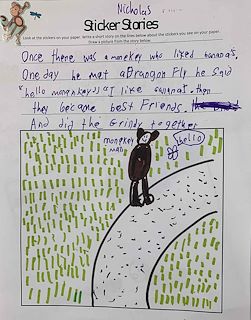 Nicholas
Sticker Stories
Look at the stickers on your paper. Write a short story on the lines below about the stickers you see on your paper.
Draw a picture from the story below.
Once there was a monekey who liked bananas,
One day he met a Drangon Fly he said
"hello monankey" I like bananas". then
they became best Friends.
And did the Grindy together
monekey
man
hello